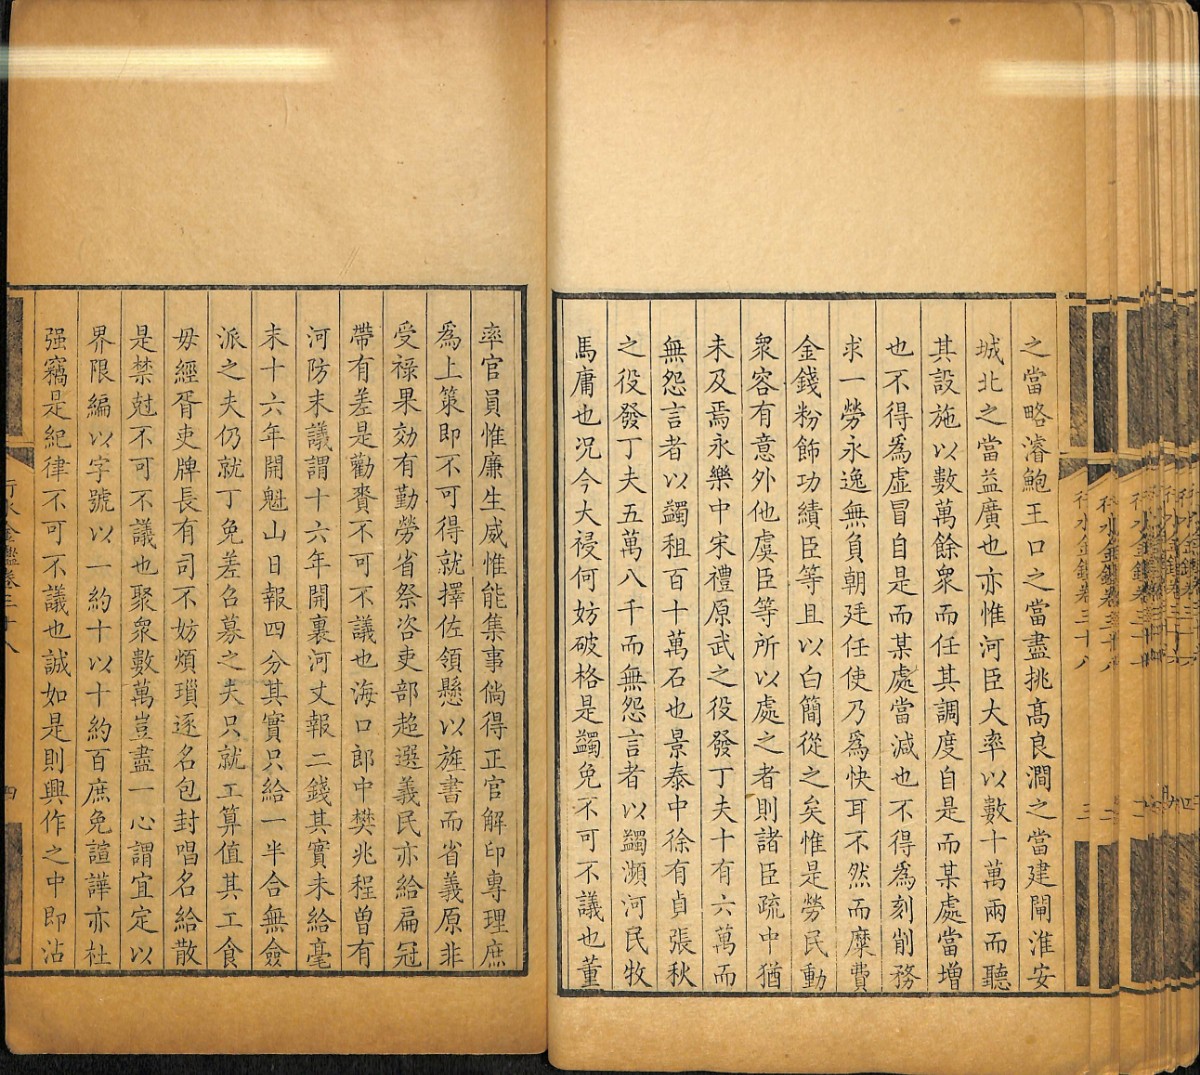 之當略濬鮑王口之當盡挑高良澗之當建閘淮安
城北之當益廣也亦惟河臣大率以數十萬兩而聽
其設施以數萬餘衆而任其調度自是而某處當增
也不得爲虛冒自是而某處當減也不得爲刻削務
求一勞永逸無負朝廷任使乃爲快耳不然而糜費
金錢粉飾功績臣等且以白簡從之矣惟是勞民動
衆容有意外他虞臣等所以處之者則諸臣疏中猶
未及焉永樂中宋禮原武之役發丁夫十有六萬而
無怨言者以蠲租百十萬石也景泰中徐有貞張秋
之役發丁夫五萬八千而無怨言者以蠲瀕河民牧
馬庸也況今大祲何妨破格是蠲免不可不議也董
率官員惟廉生威惟能集事倘得正官解印專理庶
爲上策即不可得就擇佐領懸以旌書而省義原非
受祿果効有勤勞省祭咨吏部超選義民亦給扁冠
帶有差是勸賚不可不議也海口郎中樊兆程曽有
河防末議謂十六年開裏河丈報二錢其實未給毫
末十六年開魁山日報四分其實只給一半合無僉
派之夫仍就丁免差召募之夫只就工算值其工食
毋經胥吏牌長有司不妨煩瑣逐名包封唱名給散
是禁尅不可不議也聚衆數萬豈盡一心謂宜定以
界限編以字號以一約十以十約百庶免諠譁亦杜
强竊是紀律不可不議也誠如是則興作之中即沾
行水金鑑卷三十八
四
行水金鑑卷三十八
三